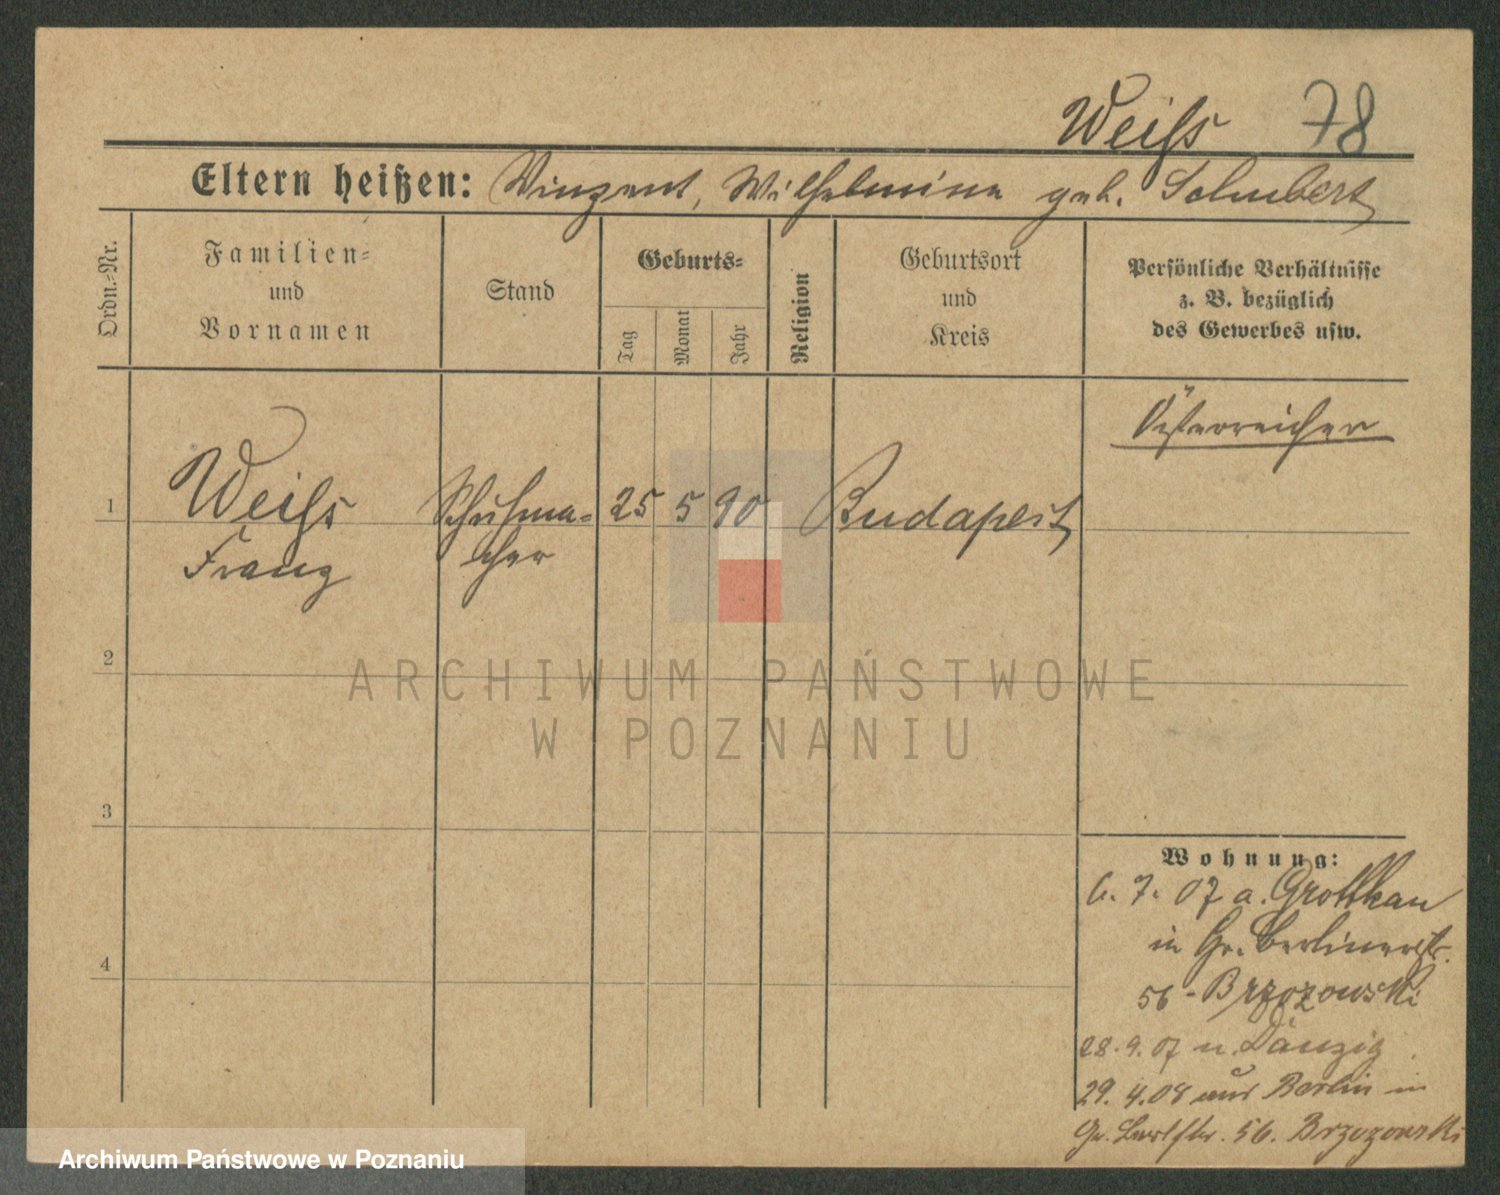 Weiss 78
Eltern heißen: Vinzent, Wilhelmine geb. Schubert
Ordn.-Nr.
Familien-
und
Vornamen
Stand
Geburts-
Tag
Monat
Jahr
Religion
Geburtsort
und
Kreis
Persönliche Verhältnisse
z. B. bezüglich
des Gewerbes usw.
Österreicher
1 Weiss Schuhma- 25 5 90 Budapest
Franz cher
2
ARCHIWUM PAŃSTWOWE
W POZNANIU
3
Wohnung:
6. 7. 07 a. Grottkau
in Gr. Berlinerstr.
56 - Brzozowski
4
28. 9. 07 n. Danzig
29. 4. 08 aus Berlin in
Gr. Berlstr. 56. Brzozowski
Archiwum Państwowe w Poznaniu